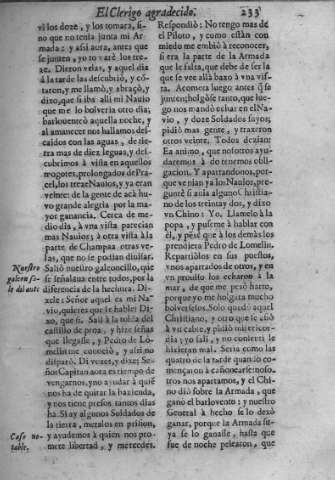 El Clerigo agradecido. 233
vi los doze, y los tomara, si-
no que no tenia junta mi Ar-
mada: y assi aora, antes que
se junten, yo to varè los tre-
ze. Dieron velas, y aquel dia
à la tarde las descubriò, y cò-
taron, y me llamò, y abraçò, y
dixo, que si iba alli mi Nauio
que me lo bolveria otro dia;
barlouenteò aquella noche, y
al amanecer nos hallamos des-
caidos con las aguas, de tie-
rra mas de diez leguas, y des-
cubrimos à vista en aquellos
mogotes, prolongados de Pra-
cel, los treze Nauios, y ya eran
veinte: de la gente de acà hu-
vo grande alegria por la ma-
yor ganancia. Cerca de me-
dio dia, à vna vista parecian
mas Nauios; à otra vista à la
parte de Champaa otras ve-
las, que no se podian diuisar.
Nuestro galeon sa- le delante
Saliò nuestro galconcillo, que
se señalaua entre todos, por la
diferencia de la hechura. Di-
xele: Señor aquel es mi Na-
vio, quieres que le hable? Di-
xo, que si. Salì à la tolda del
castillo de proa, y hize señas
que llegasse, y Pedro de Lo-
melin me conociò, y assi no
disparò. Di vozes, y dixe: Se-
ñor Capitan aora es tiempo de
vengarnos, y no ayudar à quiẽ
nos ha de quitar la hazienda,
y nos tiene presos tantos dias
ha. Si ay algunos Soldados de
la tierra, metalos en prision,
Caso no- table.
y ayudemos à quien nos pro-
mete libertad, y mercedes.
Respondiò: No tengo mas de
el Piloto, y como estàn con
miedo me embiò à reconocer,
si era la parte de la Armada
que le falta, que debe de ser la
que se vee allà baxo à vna vis-
ta. Acometa luego antes q̃ se
junten; holgòse tanto, que lue-
go nos mandò echar en el Na-
vio, y doze Soldados suyos;
pidiò mas gente, y traxeron
otros veinte. Todos dezian:
Ea animo, que nosotros ayu-
daremos à de tenernos obli-
gacion. Y apartandonos, por-
que venian ya los Nauios, pre-
guntè si auia algun Christia-
no de los treinta y dos, y dixo
vn Chino: Yo. Llamelo à la
popa, y puseme à hablar con
èl, y pensè que à los demàs los
prendiera Pedro de Lomelin.
Repartiòlos en sus puestos,
vnos apartados de otros, y en
vn prouiso los echaron à la
mar, de que me pesò harto,
porque yo me holgara mucho
bolverselos. Solo quedò aquel
Christiano, y otro que se asiò
à vn cabre, y pidiò misericor-
dia; yo salì, y no consentì le
hizieran mal. Seria como las
quatro de la tarde quando co-
mençaron à cañonearse: noso-
tros nos apartamos, y el Chi-
no diò sobre la Armada, que
ganò el barlovento: y nuestro
General à hecho se lo dexò
ganar, porque la Armada su-
ya se lo ganasse, hasta que
fue de noche pelearon, que